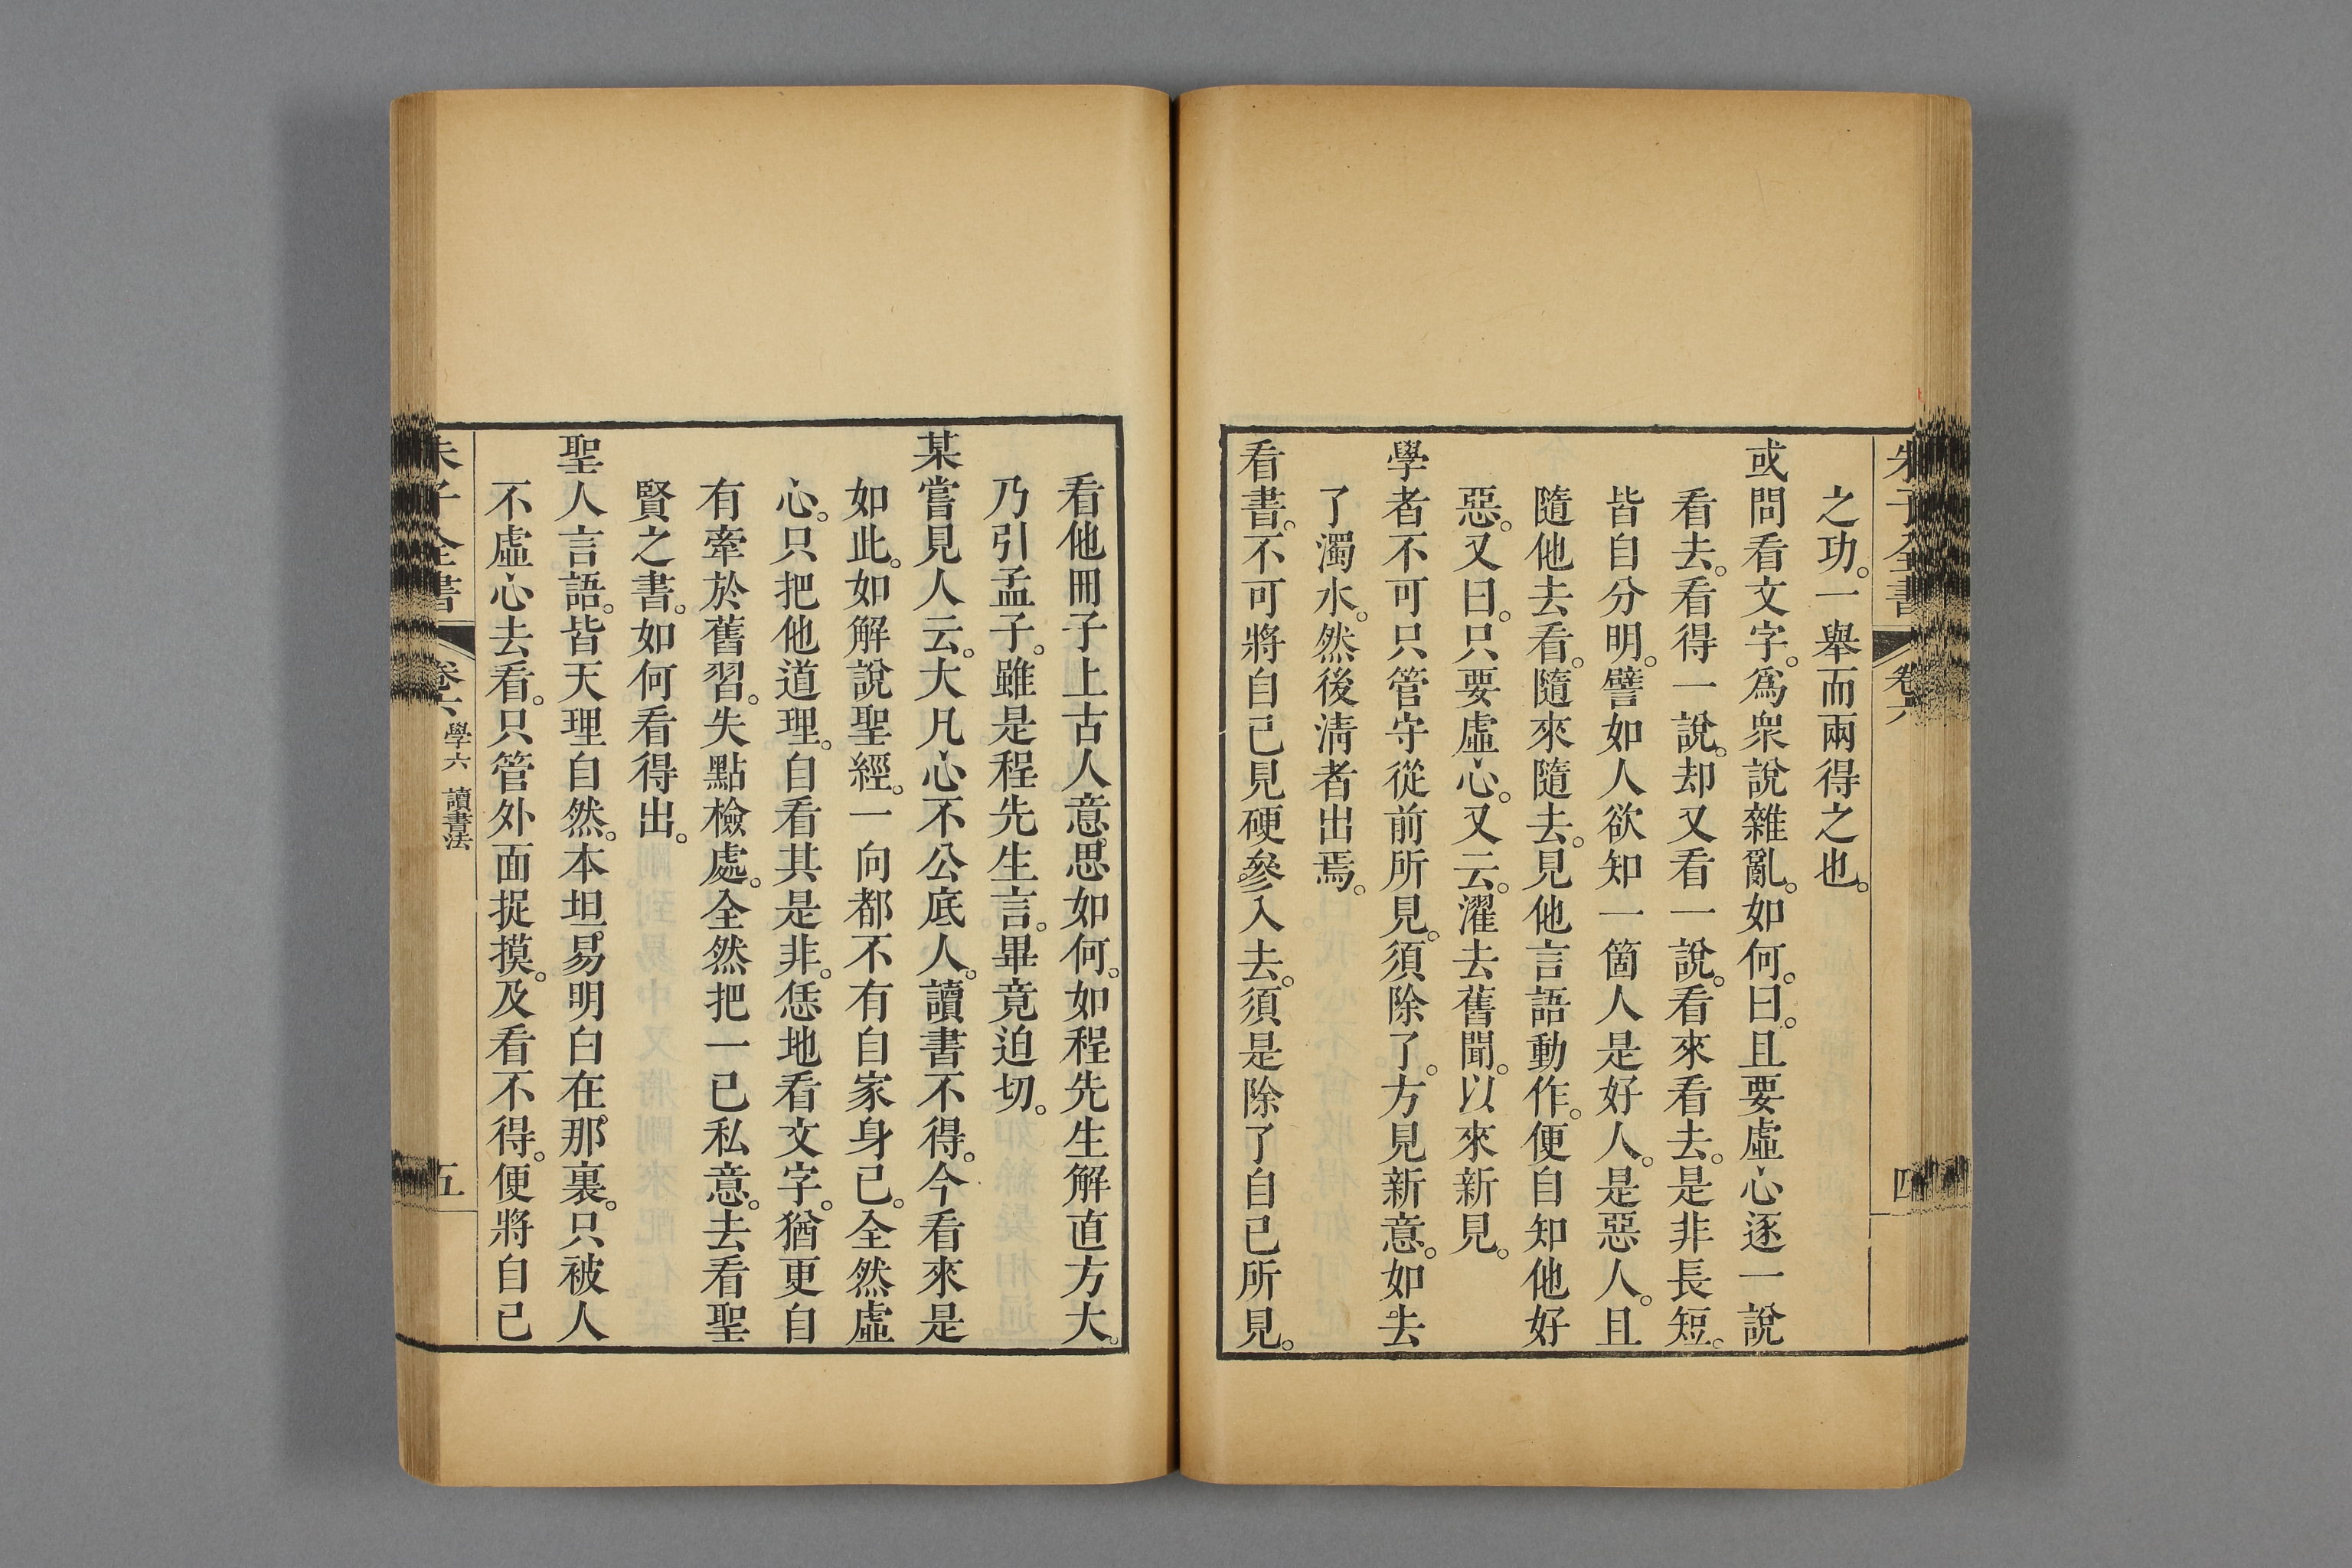 朱子全書 卷六 四
之功。一舉而兩得之也。
或問看文字。爲衆說雜亂。如何。曰。且要虛心逐一說
看去。看得一說。却又看一說。看來看去。是非長短。
皆自分明。譬如人欲知一箇人是好人。是惡人。且
隨他去看。隨來隨去。見他言語動作。便自知他好
惡。又曰。只要虛心。又云。濯去舊聞。以來新見。
學者不可只管守從前所見。須除了。方見新意。如去
了濁水。然後淸者出焉。
看書。不可將自已見硬參入去。須是除了自已所見。
看他冊子上古人意思如何。如程先生解直方大。
乃引孟子。雖是程先生言。畢竟迫切。
某嘗見人云。大凡心不公底人。讀書不得。今看來是
如此。如解說聖經。一向都不有自家身已。全然虛
心。只把他道理。自看其是非。恁地看文字。猶更自
有牽於舊習。失點檢處。全然把一已私意。去看聖
賢之書。如何看得出。
聖人言語。皆天理自然。本坦易明白在那裏。只被人
不虛心去看。只管外面捉摸。及看不得。便將自已
朱子全書 卷六 學六 讀書法 五